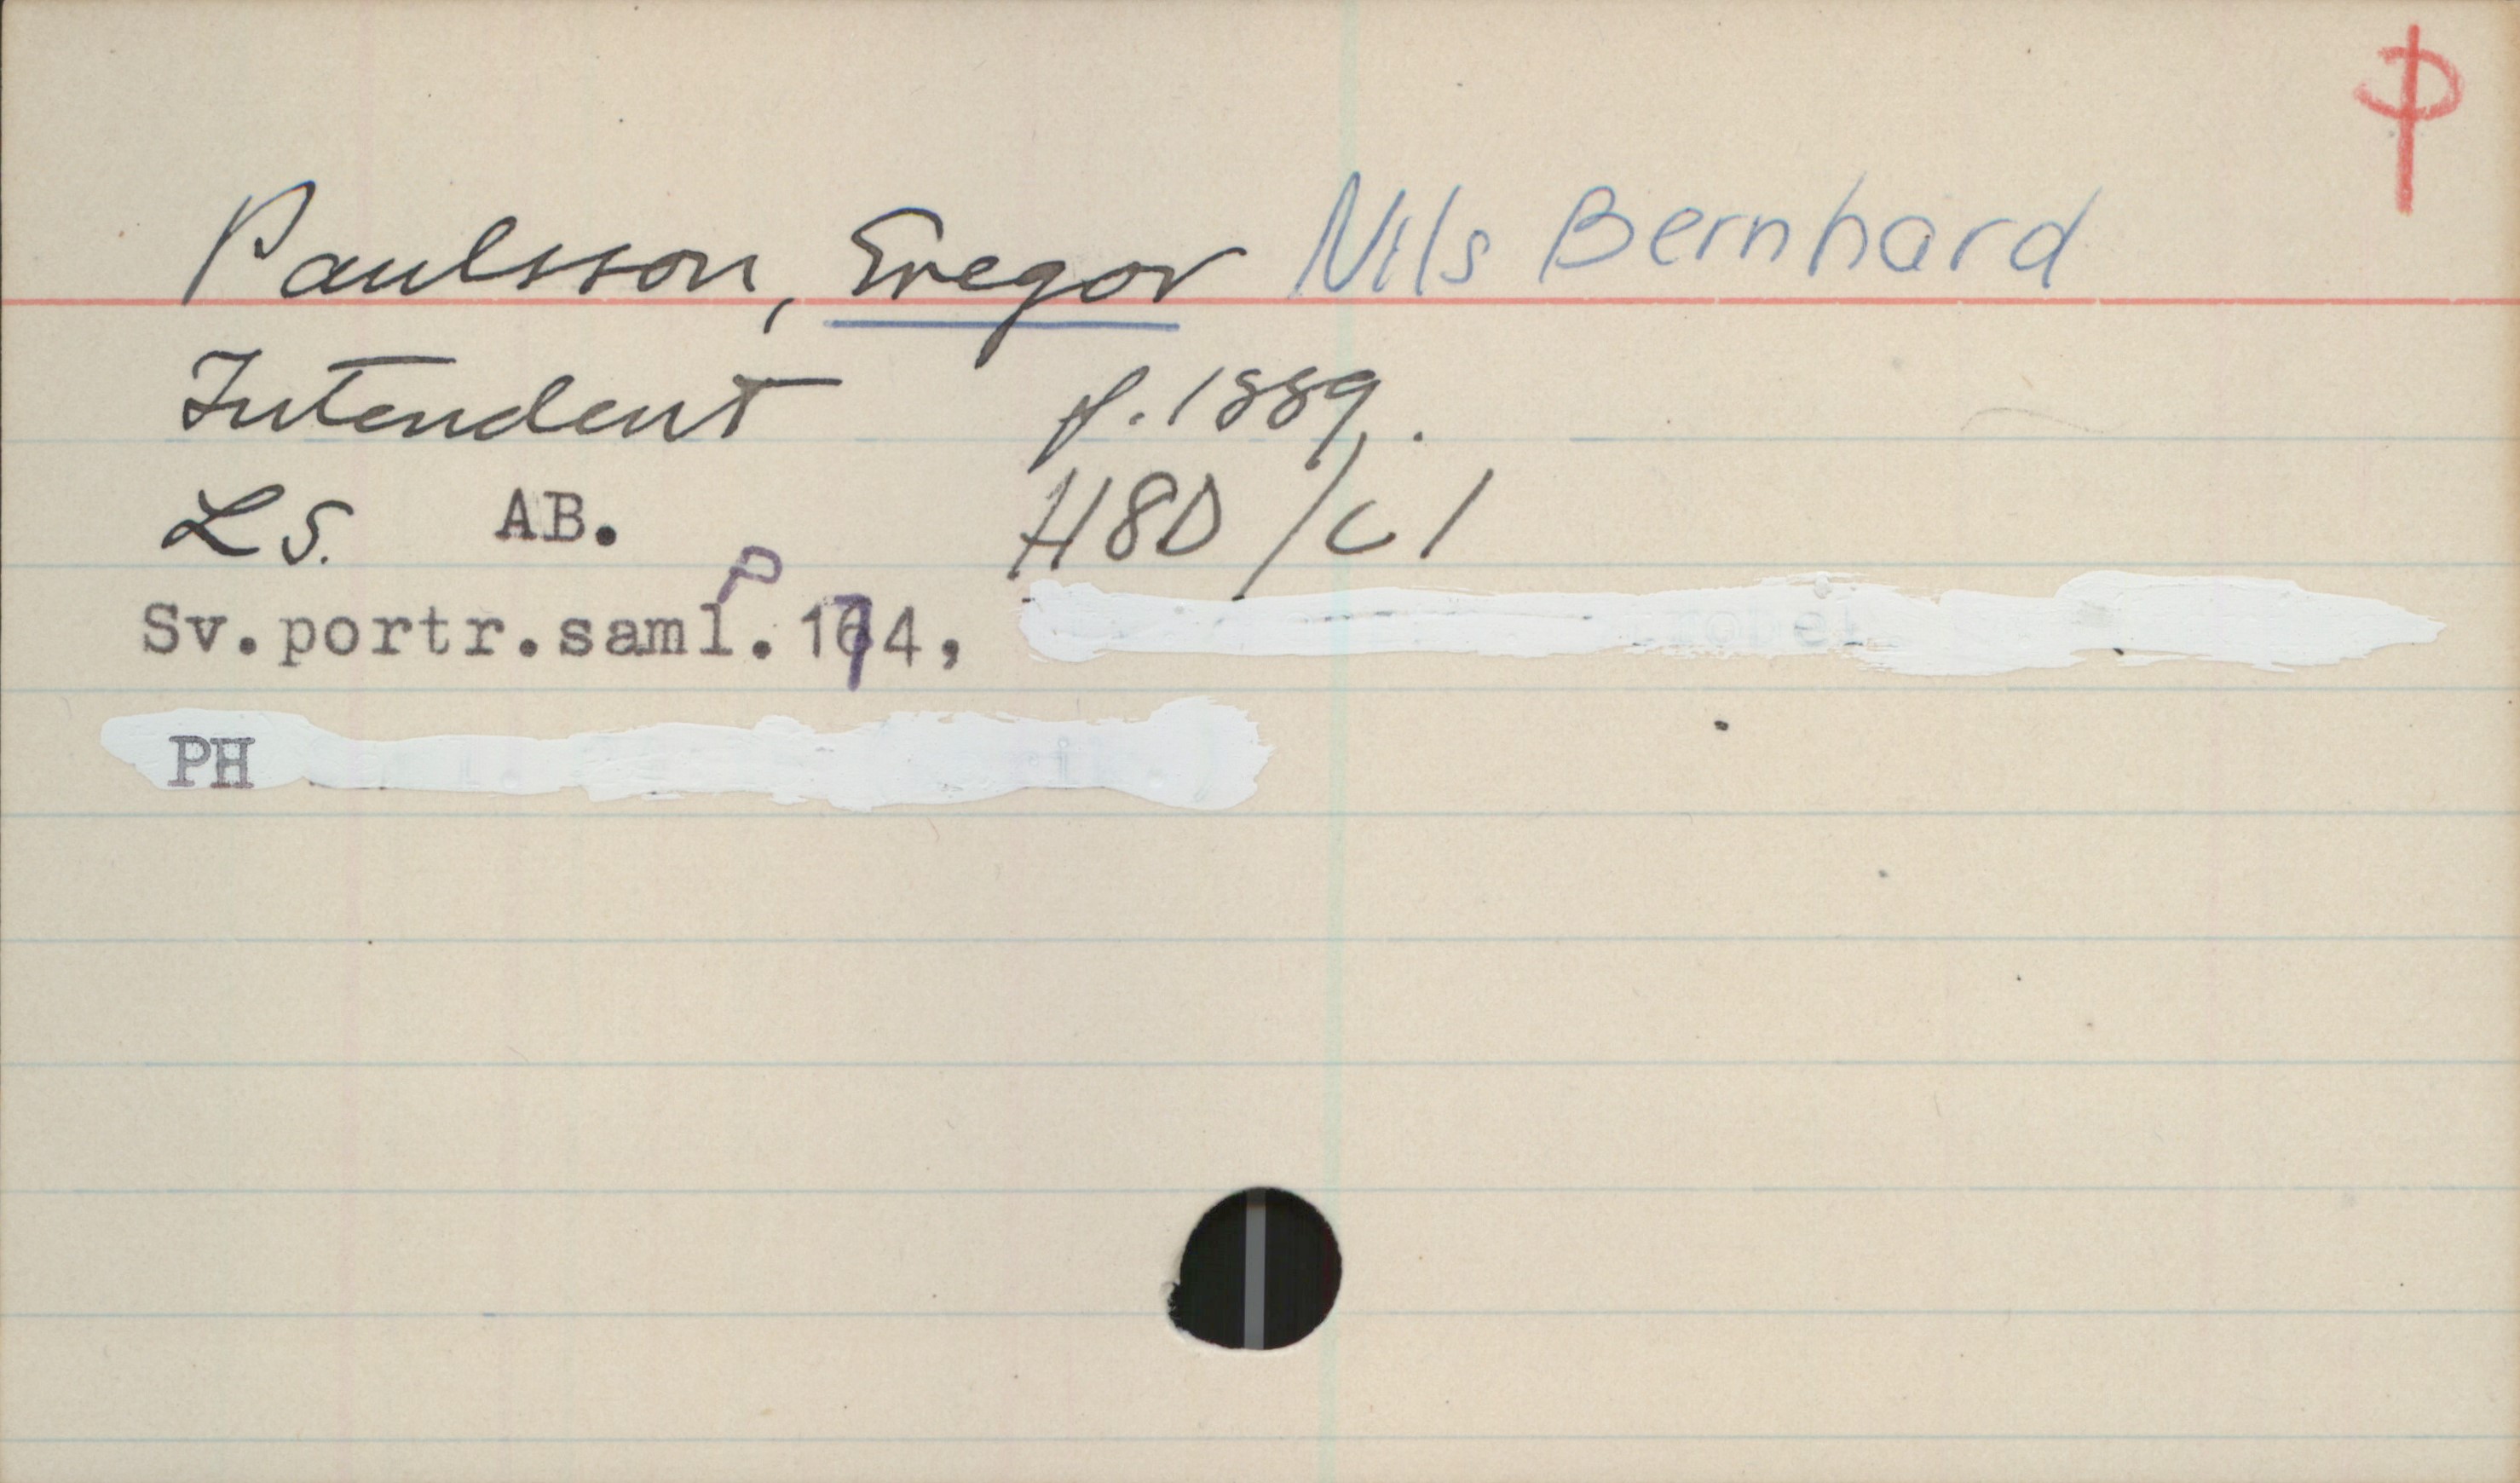 P
Paulsson, Gregor Nils Bernhard
Intendent f. 1889.
LS. AB. H8D/c1
P
Sv.portr.saml. 174,
PH